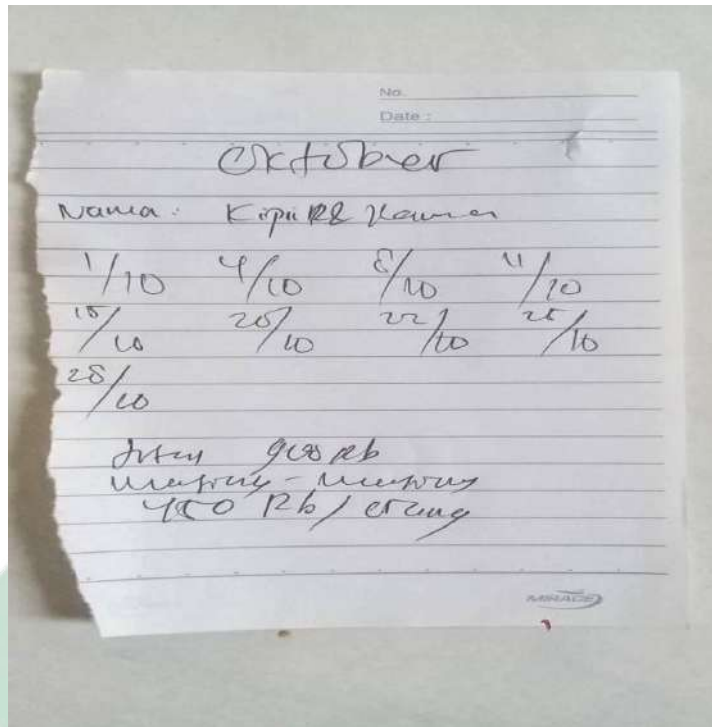 No.
Date :
Oktober
Nama :
1/10 4/10 8/10 11/10
15/10 20/10 22/10 25/10
28/10
900 Rb
masing - masing
450 Rb / orang
MIRAGE